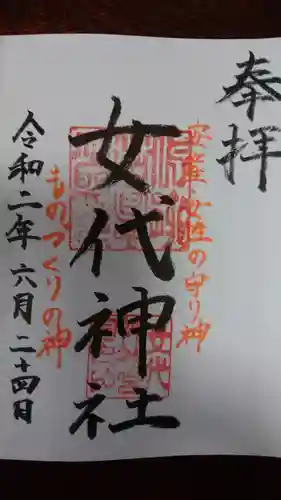 奉拝
安産 女性の守り神
女代神社
ものつくりの神
令和二年六月二十四日